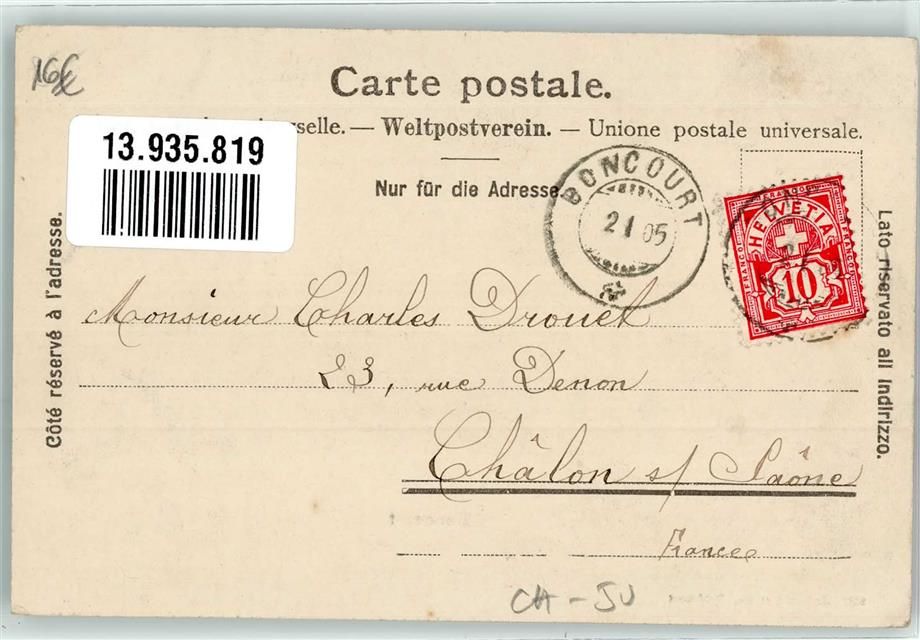 16€
Carte postale.
13.935.819
selle. — Weltpostverein. — Unione postale universale.
Nur für die Adresse.
BONCOURT
2 I 05
HELVETIA
FRANCO
10
Côté réservé à l'adresse.
Lato riservato all indirizzo.
Monsieur Charles Drouet
23, rue Denon
Châlon s/ Saône
France
CH - JU